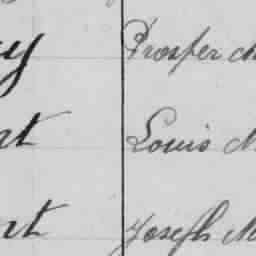 y Prosper M
nt Louis M
nt Joseph M